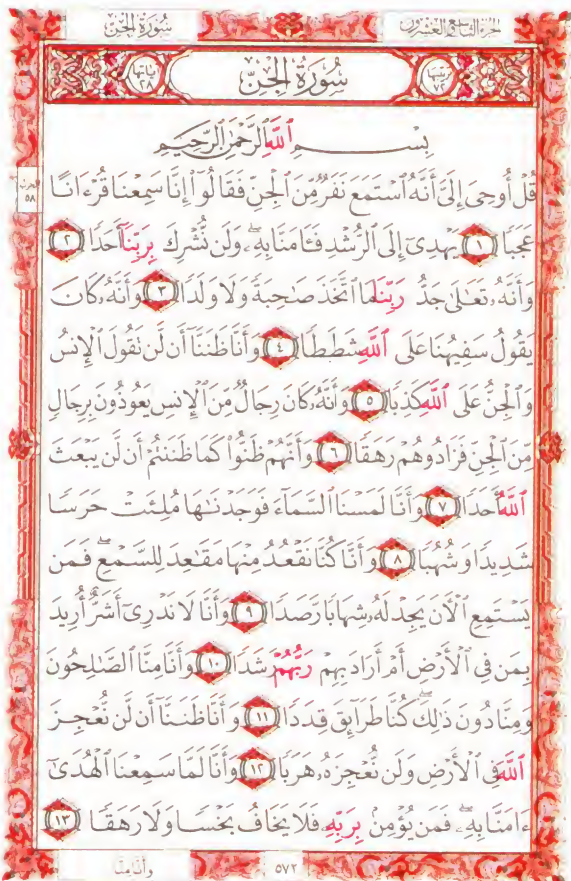 الجزء التاسع والعشرون سُورَةُ الجِنّ
ترتيبها ٧٢ سُورَةُ الجِنّ آياتها ٢٨
بِسْمِ ٱللَّهِ ٱلرَّحْمَٰنِ ٱلرَّحِيمِ
قُلْ أُوحِىَ إِلَىَّ أَنَّهُ ٱسْتَمَعَ نَفَرٌ مِّنَ ٱلْجِنِّ فَقَالُوٓا۟ إِنَّا سَمِعْنَا قُرْءَانًا
الحزب ٥٨
عَجَبًا ١ يَهْدِىٓ إِلَى ٱلرُّشْدِ فَـَٔامَنَّا بِهِۦ ۖ وَلَن نُّشْرِكَ بِرَبِّنَآ أَحَدًا ٢
وَأَنَّهُۥ تَعَٰلَىٰ جَدُّ رَبِّنَا مَا ٱتَّخَذَ صَٰحِبَةً وَلَا وَلَدًا ٣ وَأَنَّهُۥ كَانَ
يَقُولُ سَفِيهُنَا عَلَى ٱللَّهِ شَطَطًا ٤ وَأَنَّا ظَنَنَّآ أَن لَّن تَقُولَ ٱلْإِنسُ
وَٱلْجِنُّ عَلَى ٱللَّهِ كَذِبًا ٥ وَأَنَّهُۥ كَانَ رِجَالٌ مِّنَ ٱلْإِنسِ يَعُوذُونَ بِرِجَالٍ
مِّنَ ٱلْجِنِّ فَزَادُوهُمْ رَهَقًا ٦ وَأَنَّهُمْ ظَنُّوا۟ كَمَا ظَنَنتُمْ أَن لَّن يَبْعَثَ
ٱللَّهُ أَحَدًا ٧ وَأَنَّا لَمَسْنَا ٱلسَّمَآءَ فَوَجَدْنَٰهَا مُلِئَتْ حَرَسًا
شَدِيدًا وَشُهُبًا ٨ وَأَنَّا كُنَّا نَقْعُدُ مِنْهَا مَقَٰعِدَ لِلسَّمْعِ ۖ فَمَن
يَسْتَمِعِ ٱلْـَٔانَ يَجِدْ لَهُۥ شِهَابًا رَّصَدًا ٩ وَأَنَّا لَا نَدْرِىٓ أَشَرٌّ أُرِيدَ
بِمَن فِى ٱلْأَرْضِ أَمْ أَرَادَ بِهِمْ رَبُّهُمْ رَشَدًا ١٠ وَأَنَّا مِنَّا ٱلصَّٰلِحُونَ
وَمِنَّا دُونَ ذَٰلِكَ ۖ كُنَّا طَرَآئِقَ قِدَدًا ١١ وَأَنَّا ظَنَنَّآ أَن لَّن نُّعْجِزَ
ٱللَّهَ فِى ٱلْأَرْضِ وَلَن نُّعْجِزَهُۥ هَرَبًا ١٢ وَأَنَّا لَمَّا سَمِعْنَا ٱلْهُدَىٰٓ
ءَامَنَّا بِهِۦ ۖ فَمَن يُؤْمِنۢ بِرَبِّهِۦ فَلَا يَخَافُ بَخْسًا وَلَا رَهَقًا ١٣
٥٧٢ وأنا منا